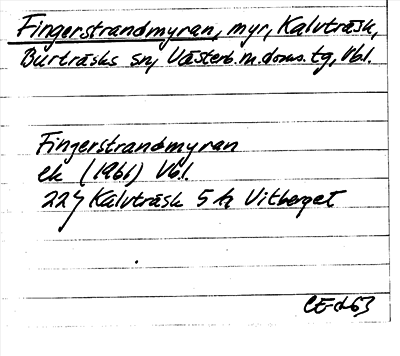 Fingerstrandmyran, myr, Kalvträsk,
Burträsks sn, Västerb. m. doms. tg, Vbl.
Fingerstrandmyran
ek (1961) Vbl.
22J Kalvträsk 5 h Vitberget
CE-d 63